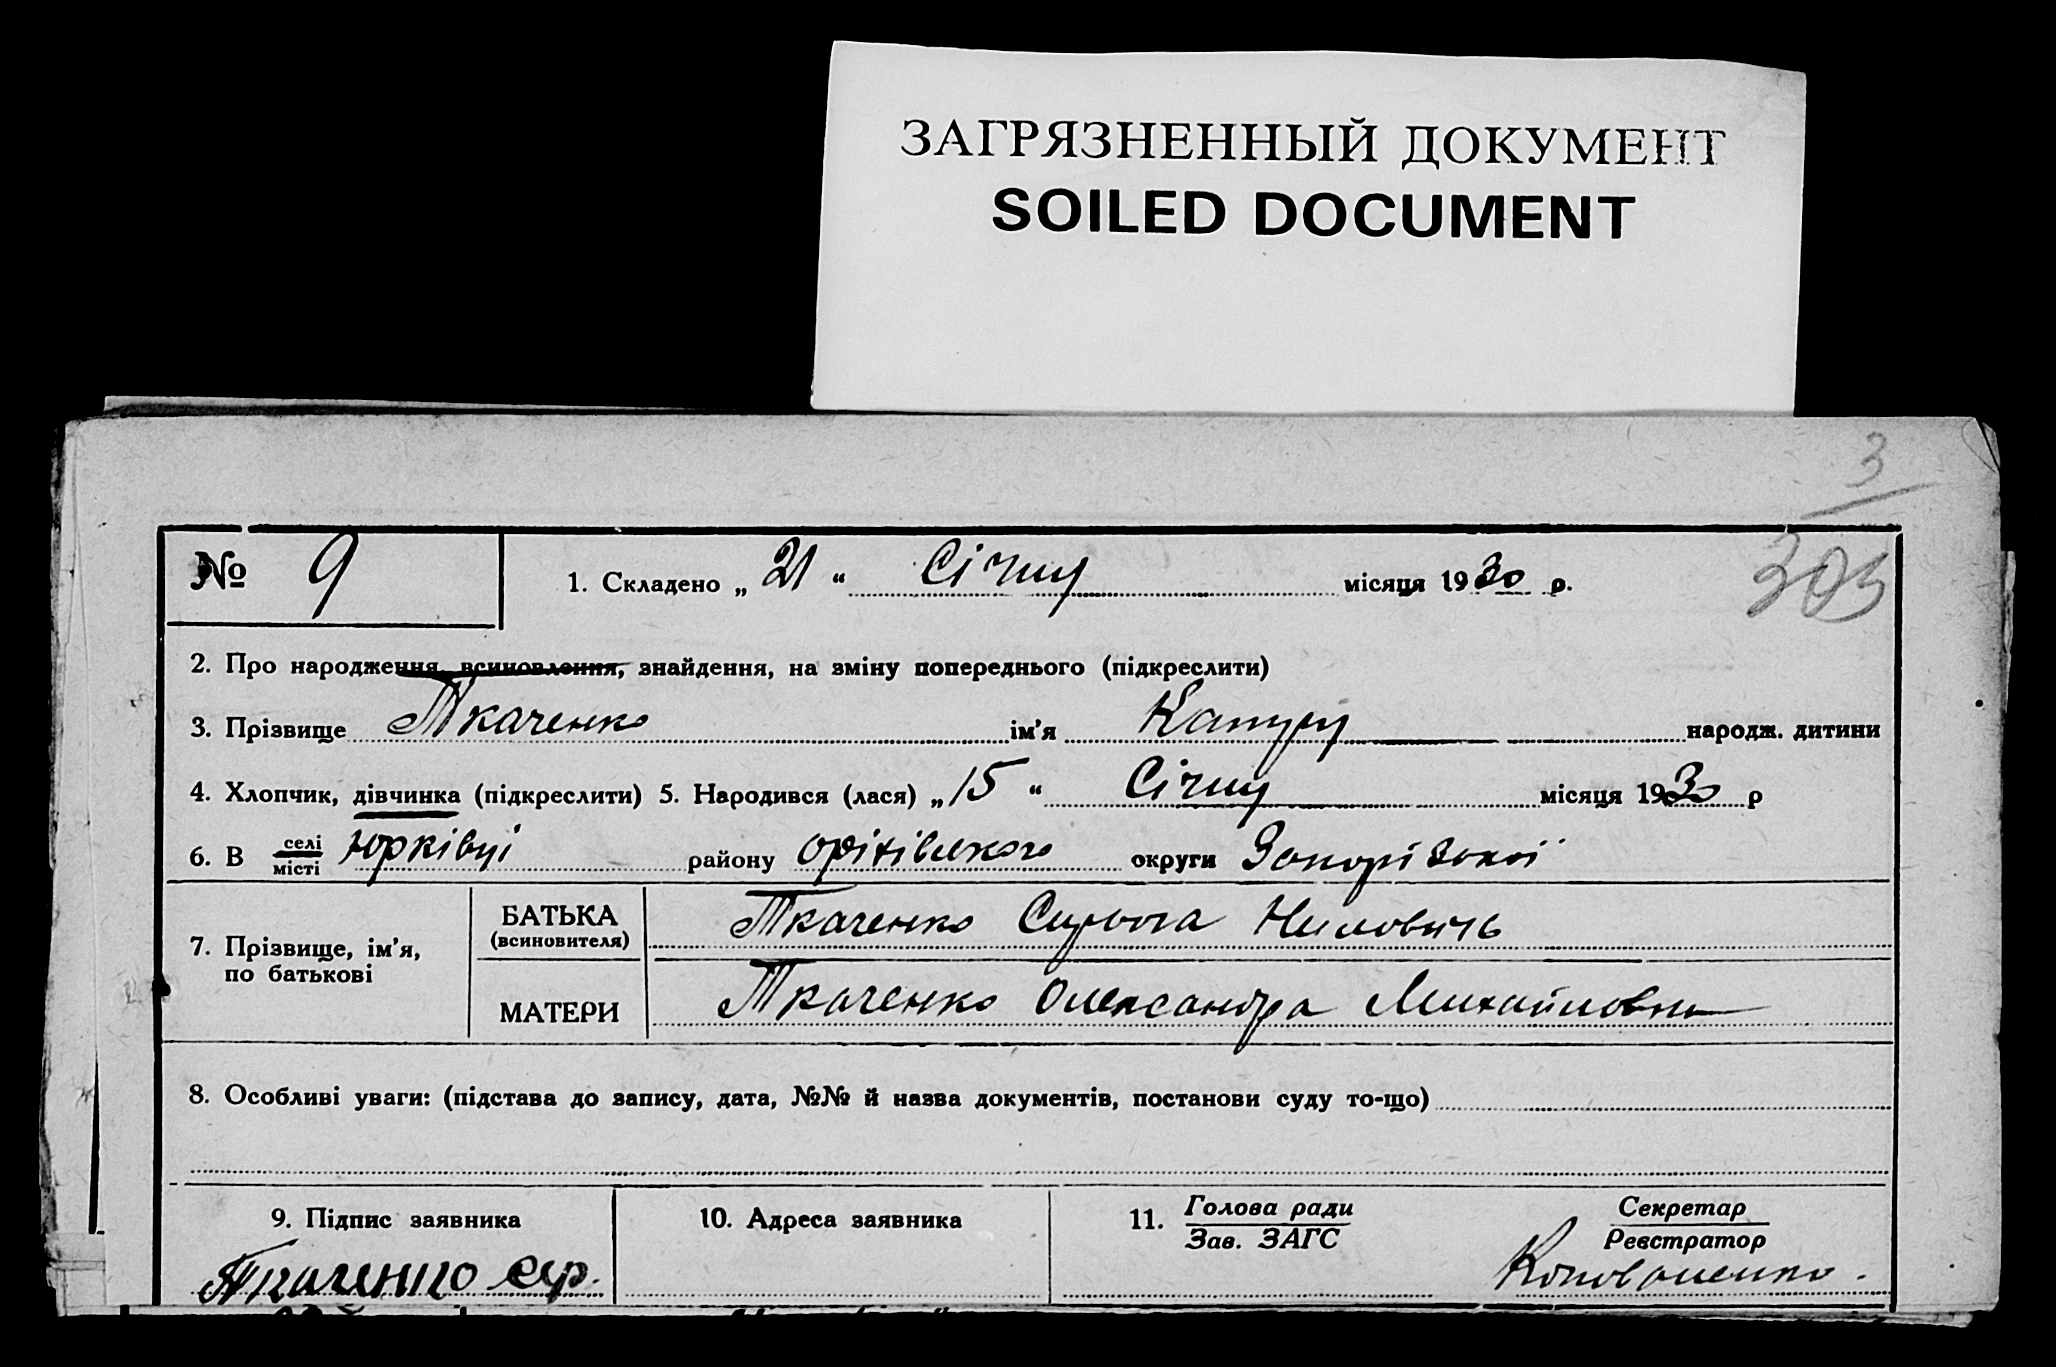 ЗАГРЯЗНЕННЫЙ ДОКУМЕНТ
SOILED DOCUMENT
3
303
№ 9
1. Складено „ 21 “ Січня місяця 1930 р.
2. Про народження, всиновлення, знайдення, на зміну попереднього (підкреслити)
3. Прізвище Ткаченко ім’я народж. дитини
4. Хлопчик, дівчинка (підкреслити) 5. Народився (лася) „ 15 “ Січня місяця 1930 р
6. В селі місті Юрківці району оріхівського округи Запорізької
7. Прізвище, ім’я, по батькові
БАТЬКА (всиновителя) Ткаченко Сирьога Ниловичь
МАТЕРИ Ткаченко Олександра Михайловна
8. Особливі уваги: (підстава до запису, дата, №№ й назва документів, постанови суду то-що)
9. Підпис заявника
10. Адреса заявника
11. Голова ради Зав. ЗАГС
Секретар Реєстратор
Ткаченко сир.
Коноваленко.